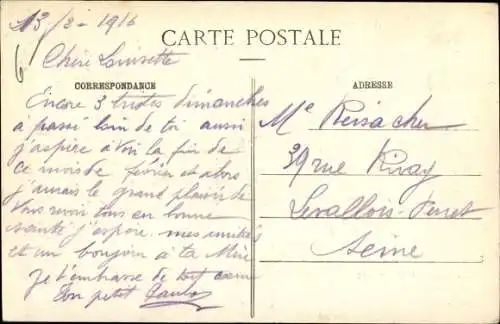 13/2 - 1916
CARTE POSTALE
Chère Louisette
CORRESPONDANCE
ADRESSE
Encore 3 tristes dimanches
à passé loin de toi aussi
j'aspère à voir la fin de
ce mois de février et alors
j'aurais le grand plaisir de
vous revoir tous en bonne
santé j'espère. mes amitiés
et un bonjour à ta Mère
Je t'embrasse de tout cœur
Ton petit
Me
39 rue Rivay
Levallois-Perret
Seine